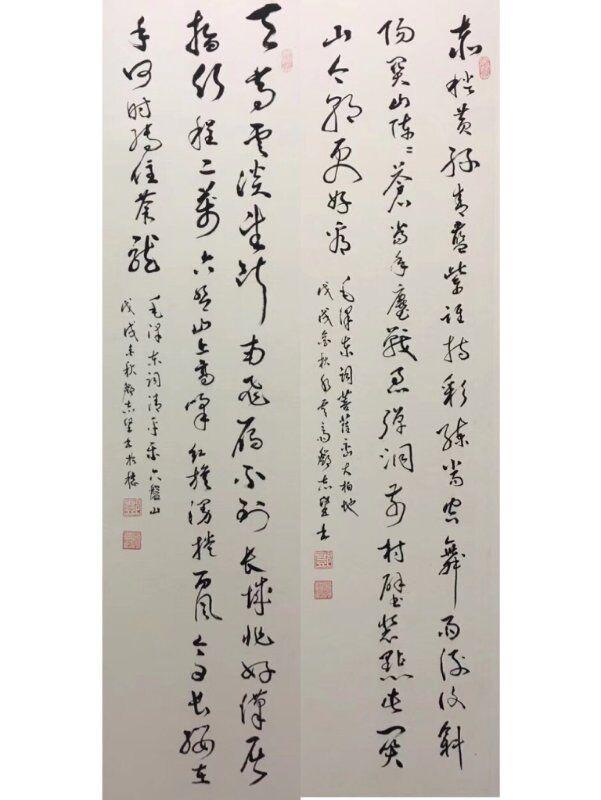 赤橙黄绿青蓝紫谁持彩练当空舞雨后复斜
阳关山阵〻苍当年鏖战急弹洞前村壁装點此关
山今朝更好看
毛泽东词菩萨蛮大柏地
戊戌金秋志坚书
天高云淡望断南飞雁不到长城非好漢屈
指行程二萬六盘山上高峰红旗漫捲西风今日长缨在
手何时缚住苍龙
毛泽东词清平乐六盘山
戊戌秋志坚书於